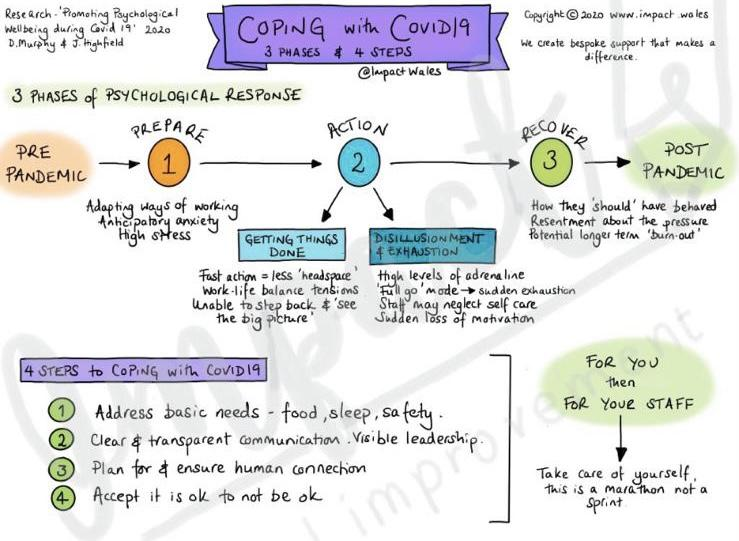 Research - 'Promoting Psychological
Wellbeing during Covid 19' 2020
D.Murphy & J.Highfield
COPING with COVID19
3 PHASES & 4 STEPS
@ImpactWales
Copyright © 2020 www.impact.wales
We create bespoke support that makes a
difference.
3 PHASES of PSYCHOLOGICAL RESPONSE
PRE
PANDEMIC
PREPARE
1
Adapting ways of working
Anticipatory anxiety
High stress
ACTION
2
GETTING THINGS
DONE
Fast action = less 'headspace'
Work-life balance tensions
Unable to step back & 'see
the big picture'
DISILLUSIONMENT
& EXHAUSTION
High levels of adrenaline
'Full go' mode → sudden exhaustion
Staff may neglect self care
Sudden loss of motivation
RECOVER
3
How they 'should' have behaved
Resentment about the pressure
Potential longer term 'burn-out'
POST
PANDEMIC
4 STEPS to COPING with COVID19
1 Address basic needs - food, sleep, safety.
2 Clear & transparent communication. Visible leadership.
3 Plan for & ensure human connection
4 Accept it is ok to not be ok
FOR YOU
then
FOR YOUR STAFF
Take care of yourself,
this is a marathon not a
sprint.
Impact
improvement